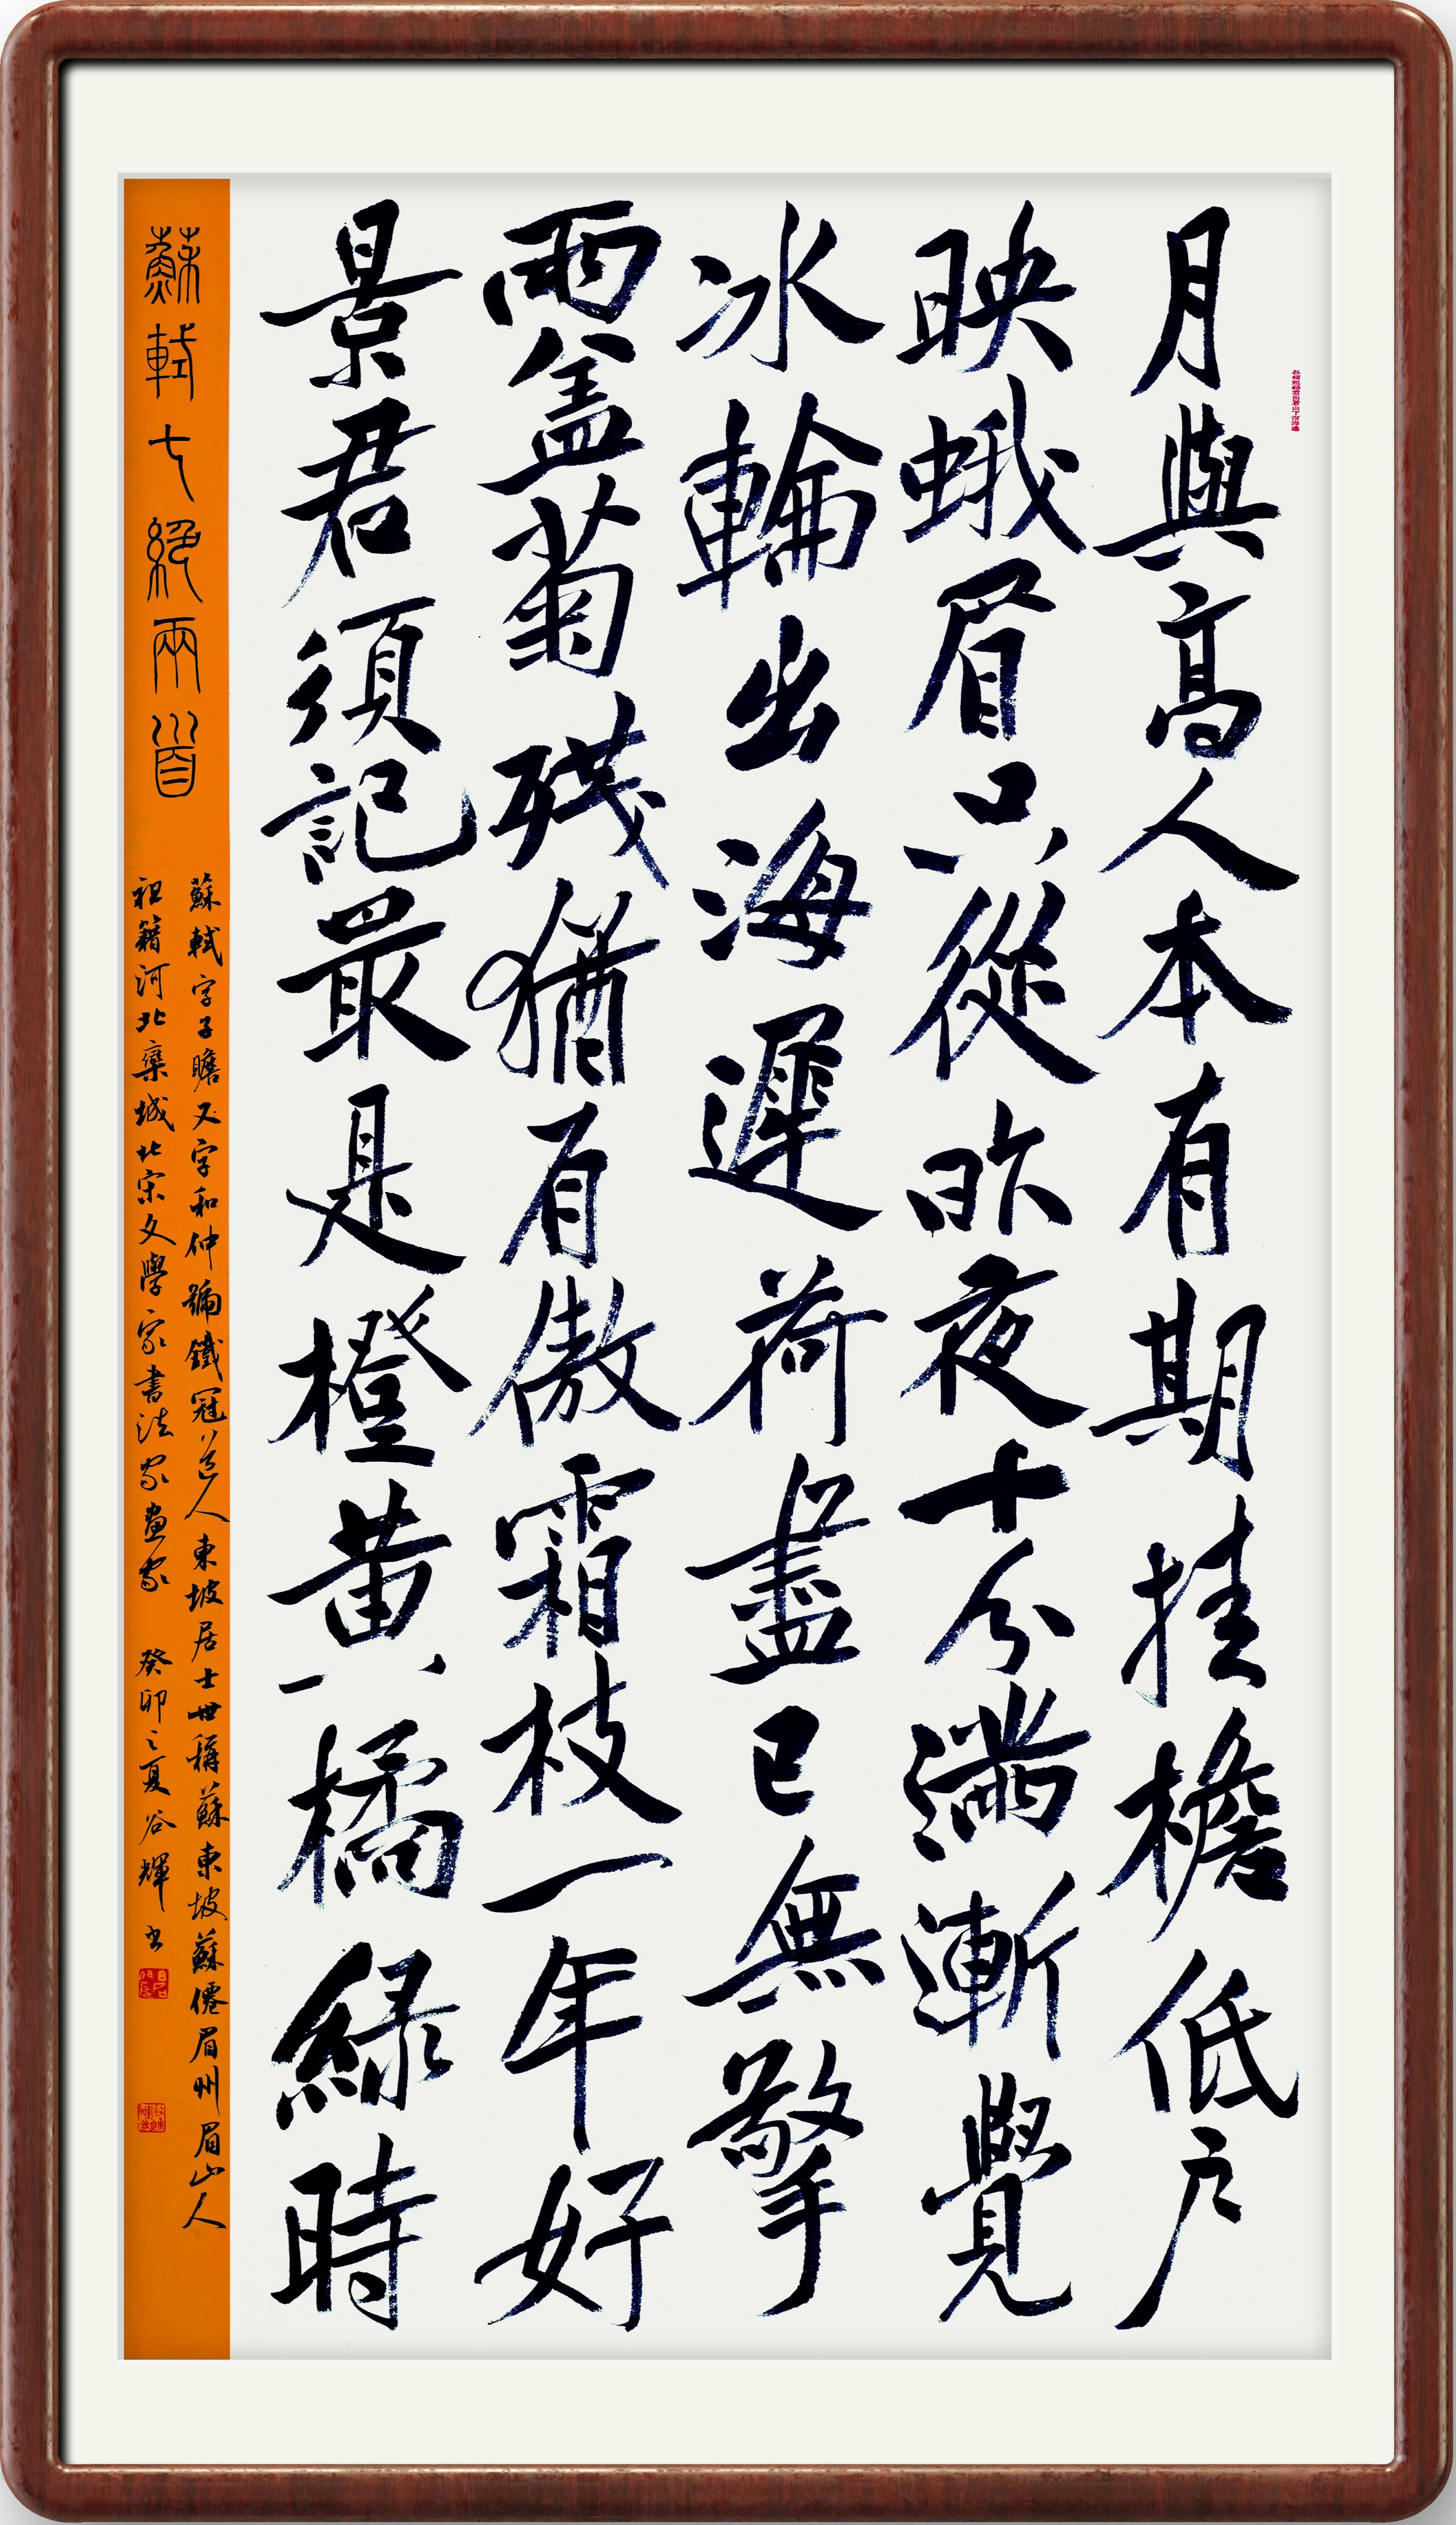 月與高人本有期挂檐低户
映蛾眉只從昨夜十分滿漸覺
冰輪出海遲荷盡已無擎
雨盖菊殘猶有傲霜枝一年好
景君須記最是橙黄橘緑時
蘇軾七絕兩首
蘇軾字子瞻又字和仲號鐵冠道人東坡居士世稱蘇東坡蘇僊眉州眉山人
祖籍河北欒城北宋文學家書法家畫家 癸卯之夏谷輝书